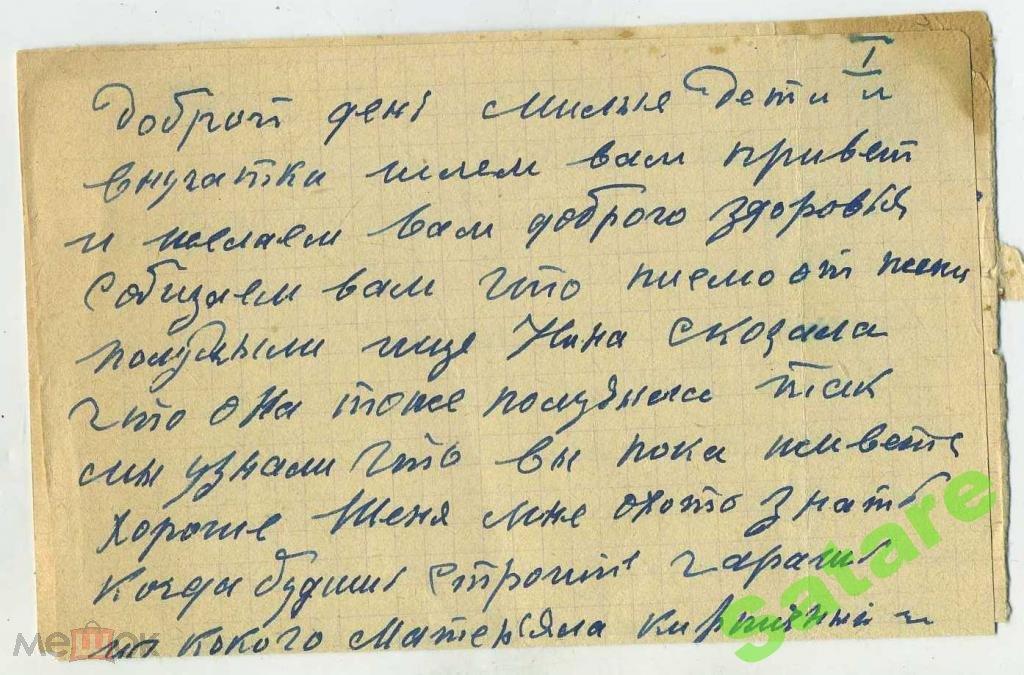 I
Доброй дені милыя Дети и
внучатки шлем вам привет
и желаем вам доброго здоровья
собизаем вам что писмо от жени
получыли ище Нина скозала
что она тоже получыла так
мы узнали что вы пока живете
хороше Женя мне охото знать
когда будиш строит гараж
из кокого матерьяла кирпичный и
мешок
satare